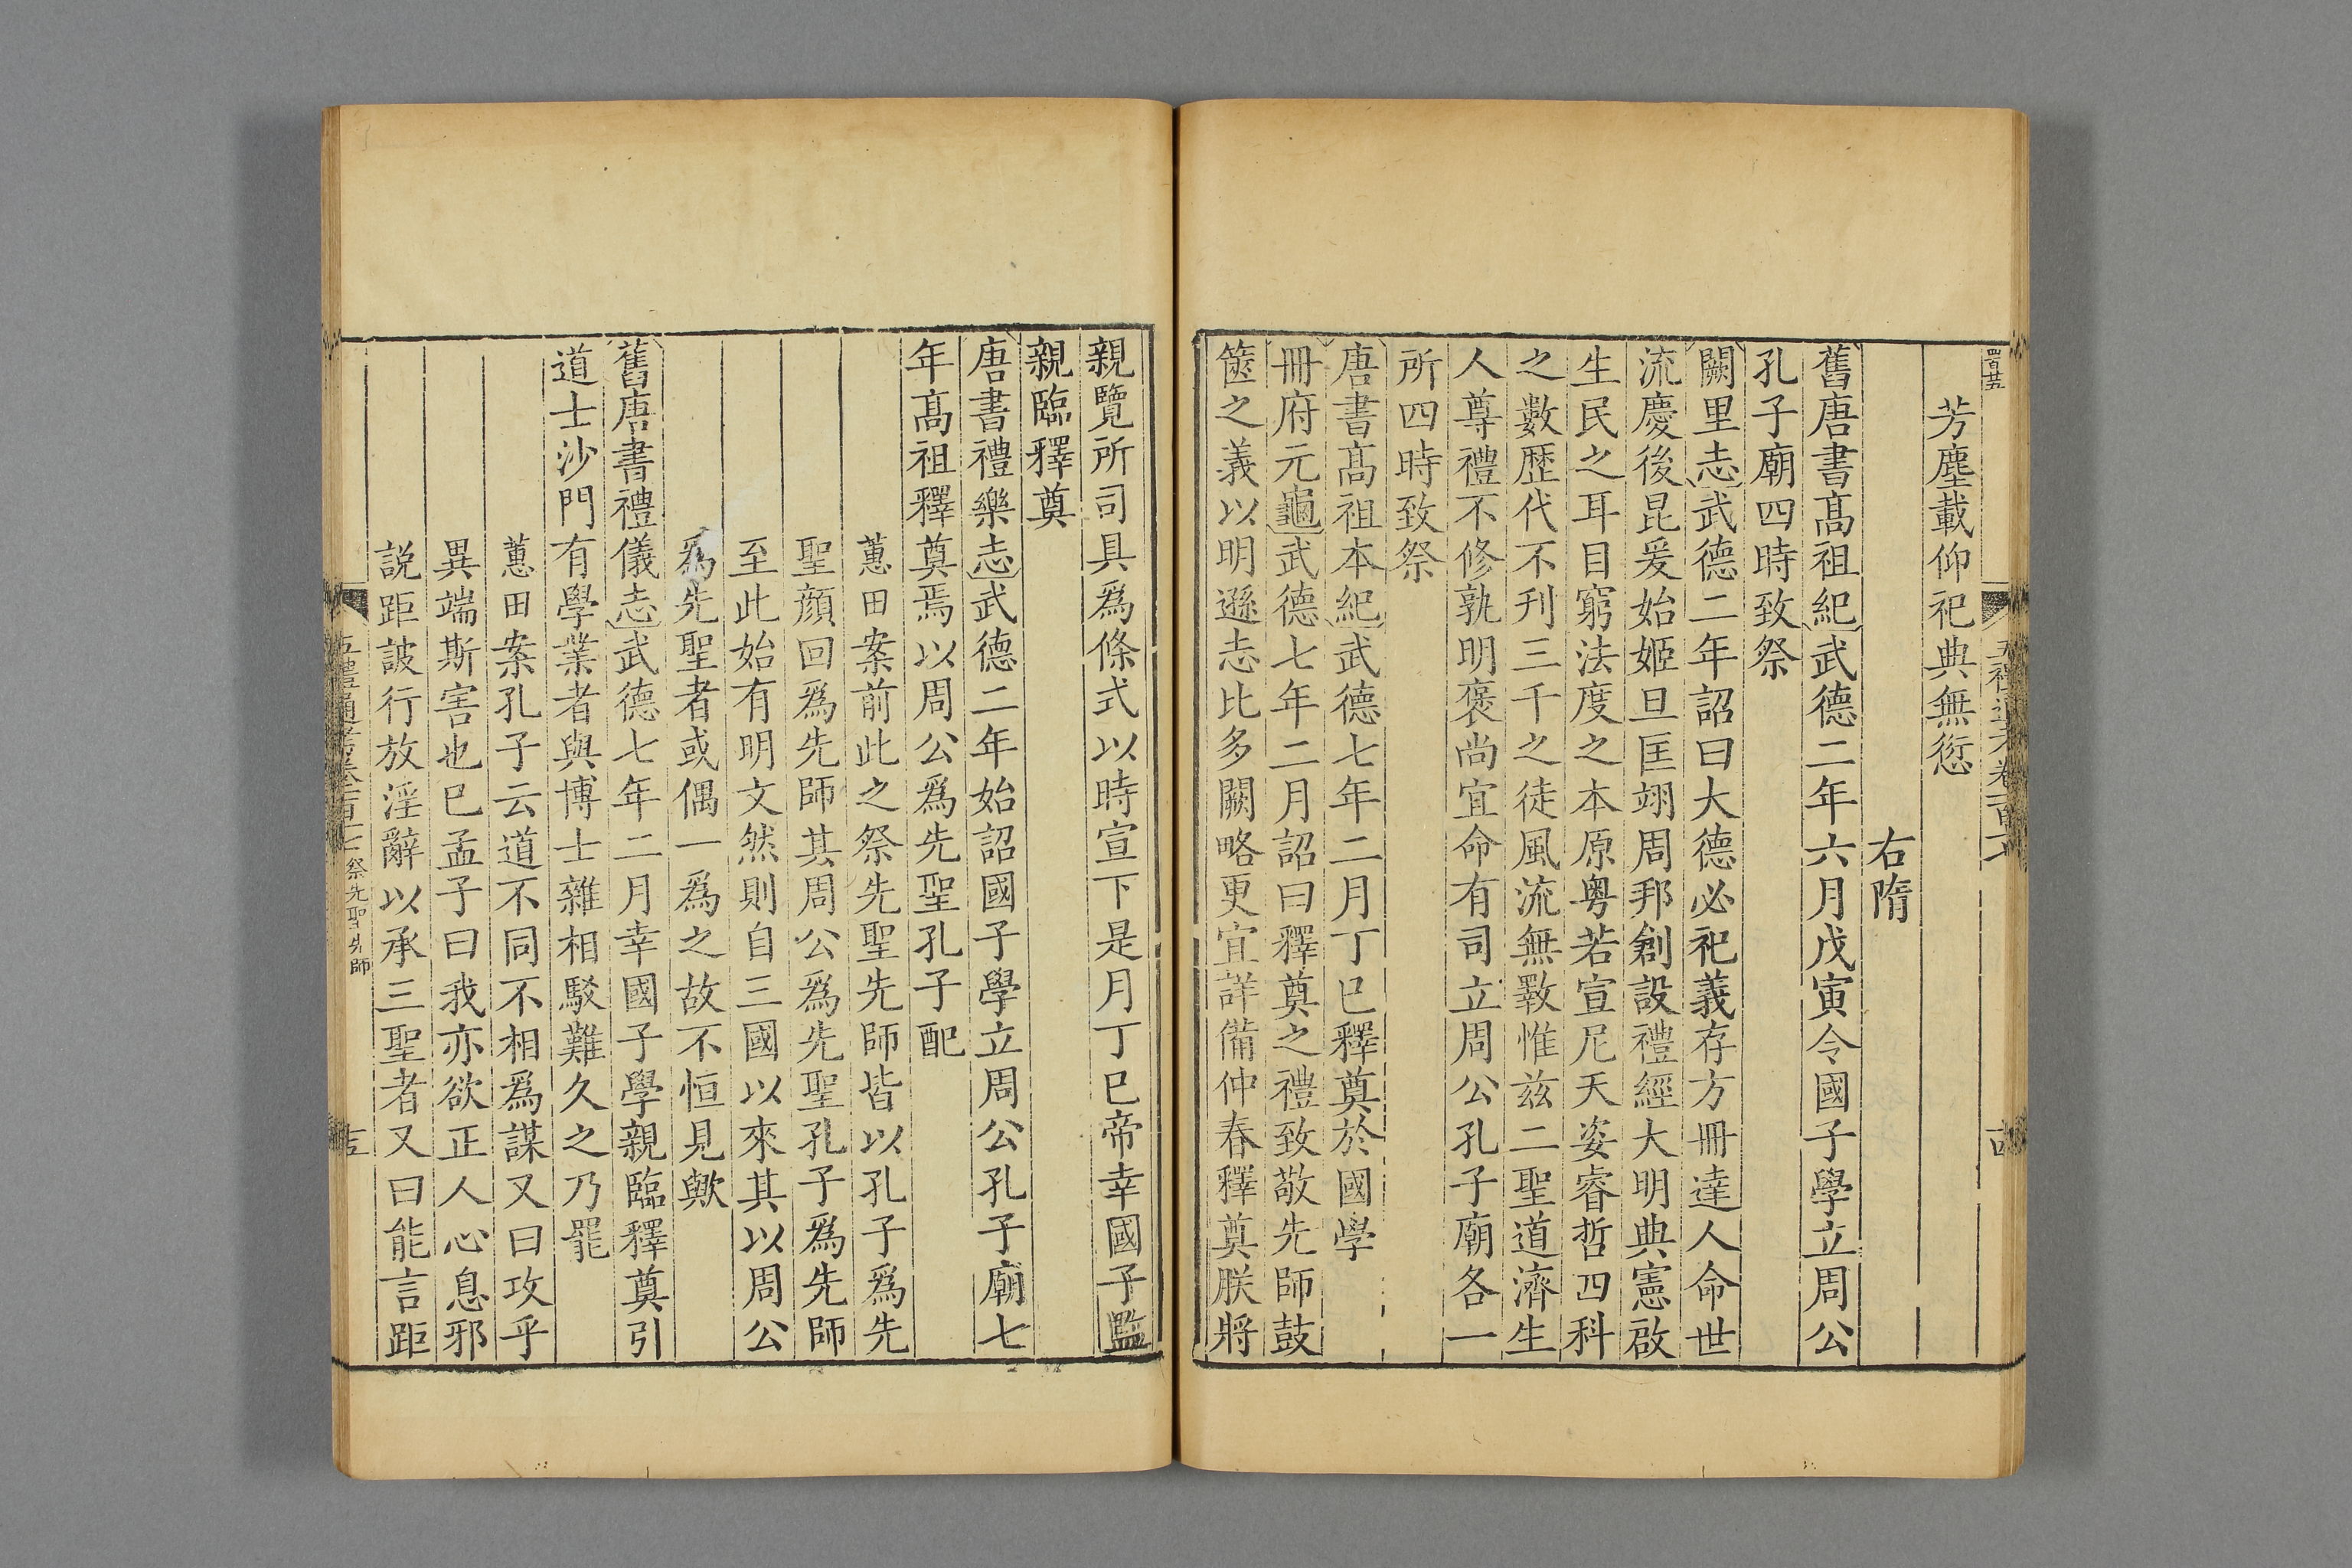 芳塵載仰祀典無愆
右隋
舊唐書髙祖紀武德二年六月戊寅令國子學立周公
孔子廟四時致祭
闕里志武德二年詔曰大德必祀義存方冊達人命世
流慶後昆爰始姬旦匡翊周邦創設禮經大明典憲啟
生民之耳目窮法度之本原粤若宣尼天姿睿哲四科
之數歴代不刋三千之徒風流無斁惟兹二聖道濟生
人尊禮不修孰明褒尚宜命有司立周公孔子廟各一
所四時致祭
唐書髙祖本紀武德七年二月丁巳釋奠於國學
冊府元龜武德七年二月詔曰釋奠之禮致敬先師鼓
篋之義以明遜志比多闕略更宜詳備仲春釋奠朕將
親覽所司具爲條式以時宣下是月丁巳帝幸國子監
親臨釋奠
唐書禮樂志武德二年始詔國子學立周公孔子廟七
年髙祖釋奠焉以周公爲先聖孔子配
蕙田案前此之祭先聖先師皆以孔子爲先
聖顔回爲先師其周公爲先聖孔子爲先師
至此始有明文然則自三國以來其以周公
爲先聖者或偶一爲之故不恒見歟
舊唐書禮儀志武德七年二月幸國子學親臨釋奠引
道士沙門有學業者與博士雜相駁難久之乃罷
蕙田案孔子云道不同不相爲謀又曰攻乎
異端斯害也巳孟子曰我亦欲正人心息邪
説距詖行放淫辭以承三聖者又曰能言距
五禮通考卷一百十七 祭先聖先師